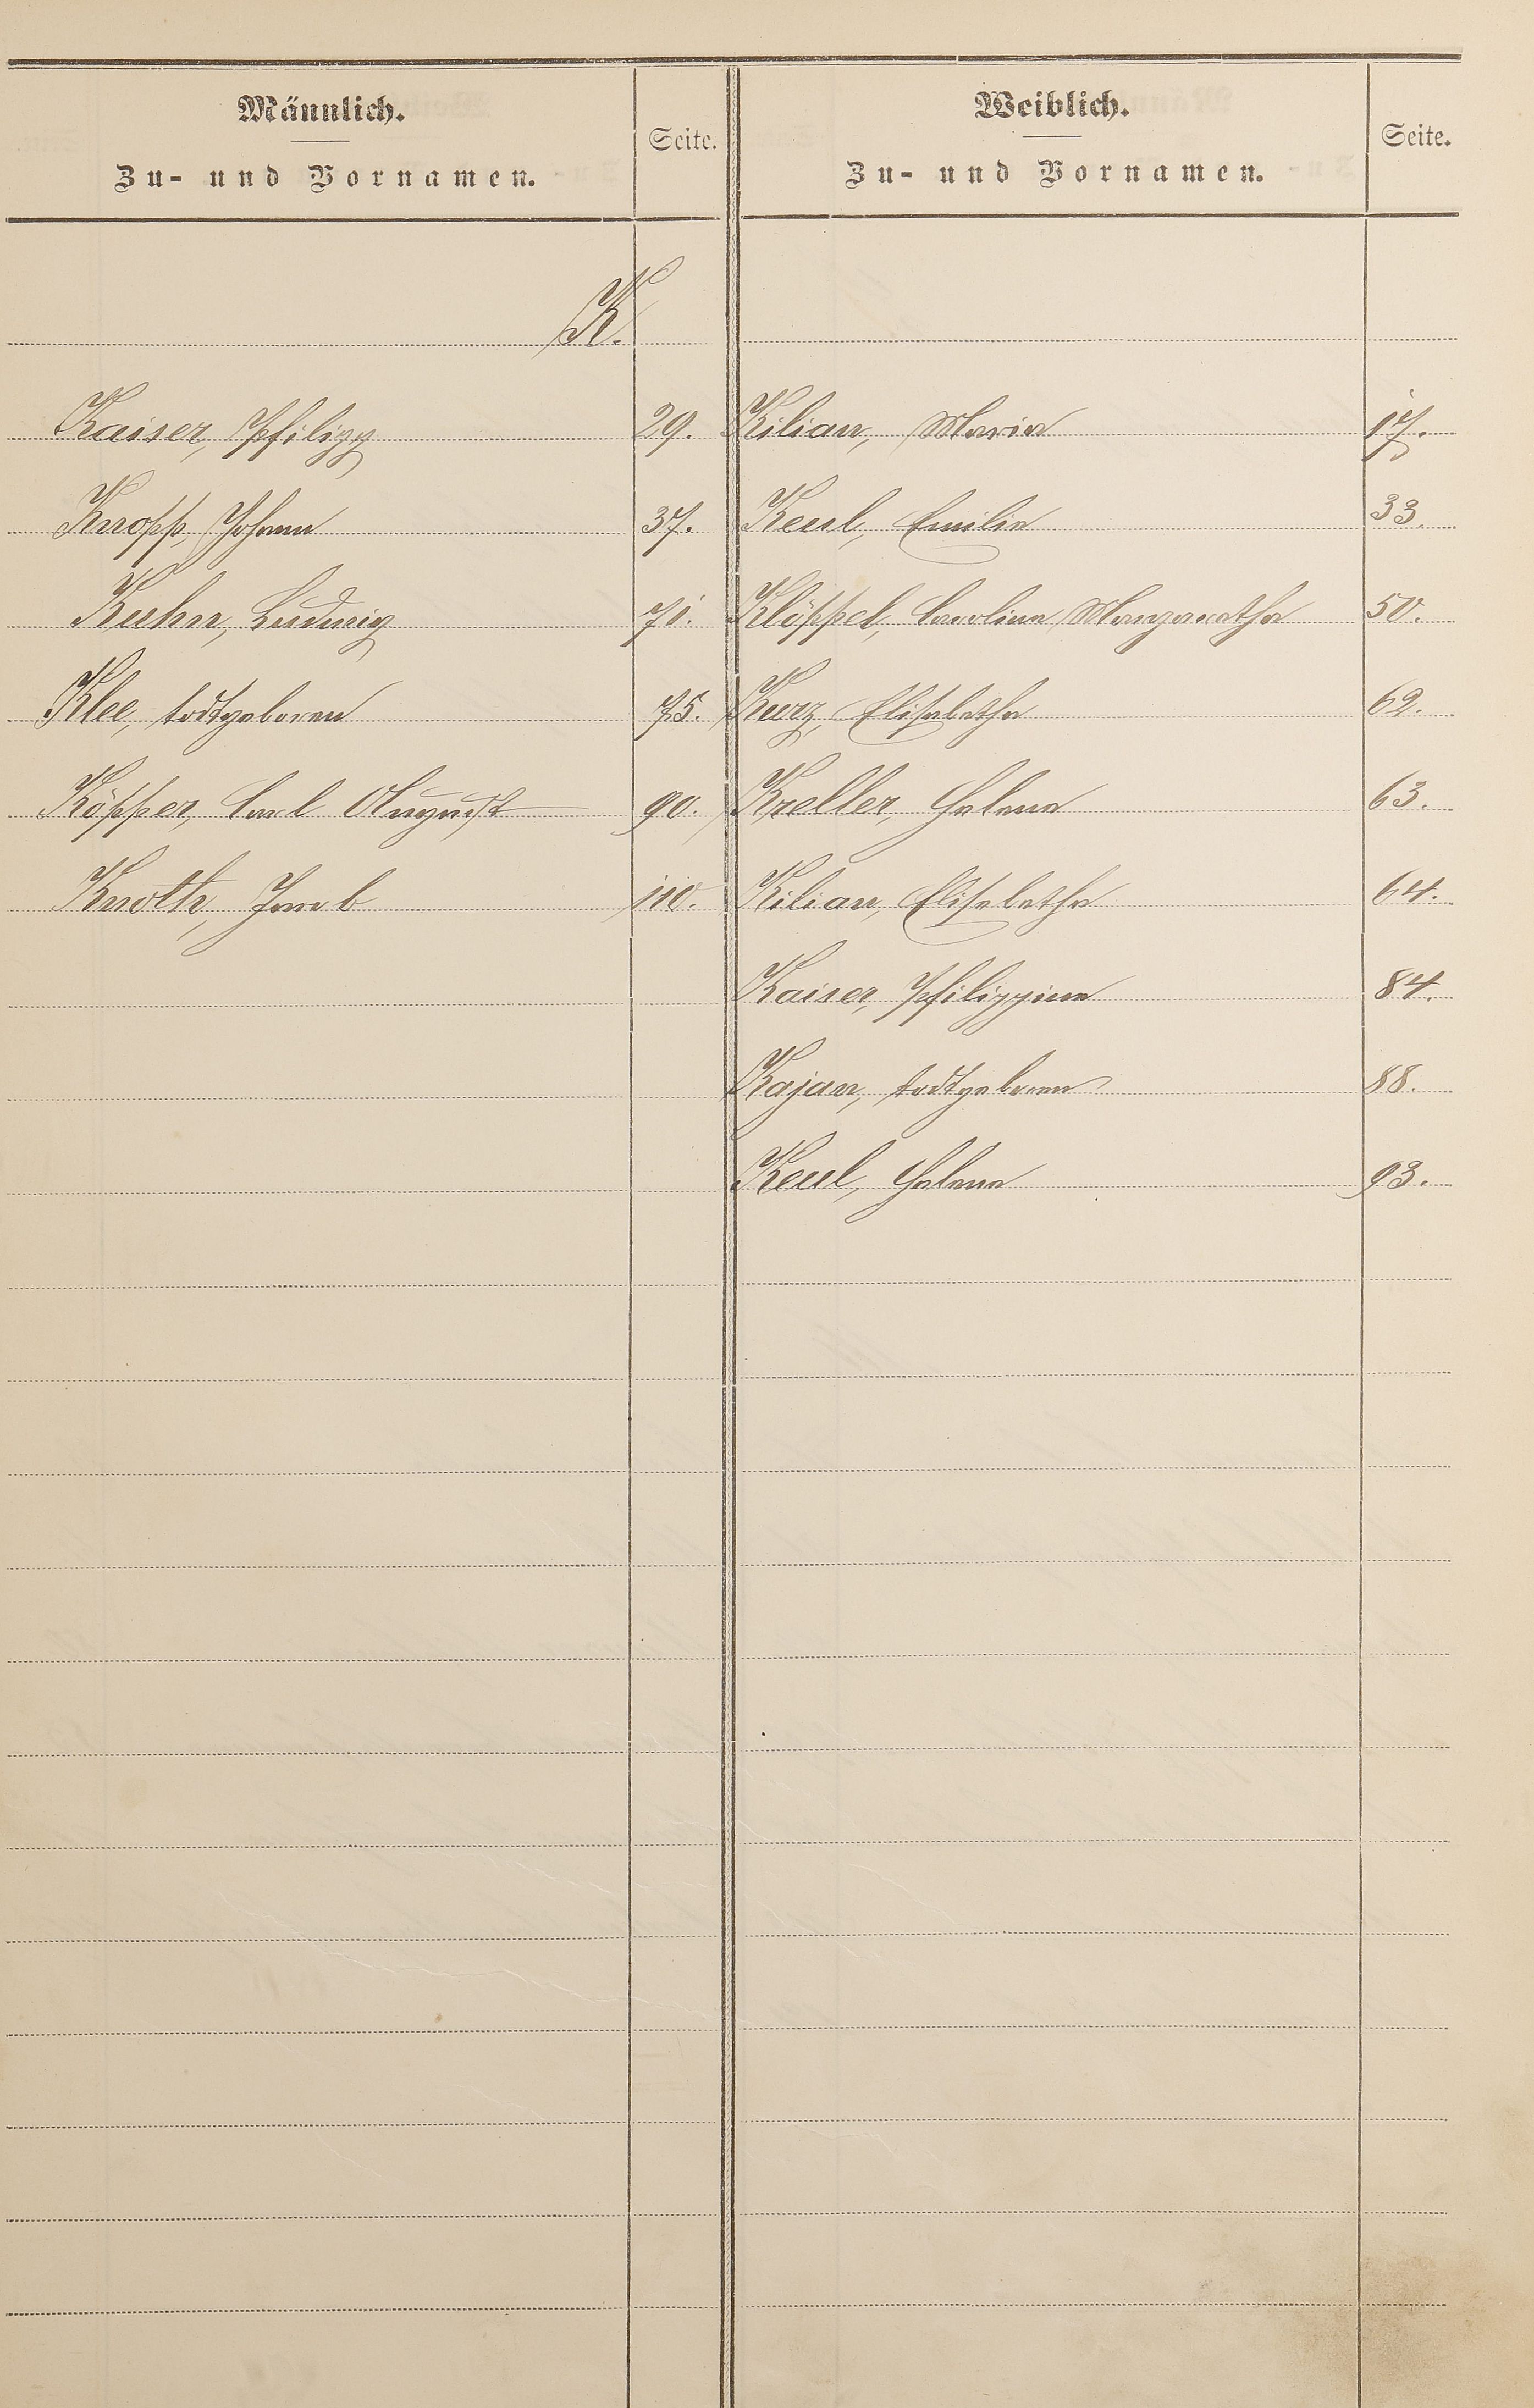 Männlich.
Zu- und Vornamen.
Seite.
Weiblich.
Zu- und Vornamen.
Seite.
K.
Kaiser, Philipp 29. Kilian, Maria 17.
Knopp, Johann 37. Keul, Emilie 33.
Kuhn, Ludwig 71. Klöppel, Caroline Margaretha 50.
Klee, todtgeboren 75. Kurz, Elisabetha 62.
Köpper, Carl August 90. Kreller, Helene 63.
Knoth, Jacob 110. Kilian, Elisabetha 64.
Kaiser, Philippine 84.
Kajan, todtgeboren 88.
Keul, Helene 93.